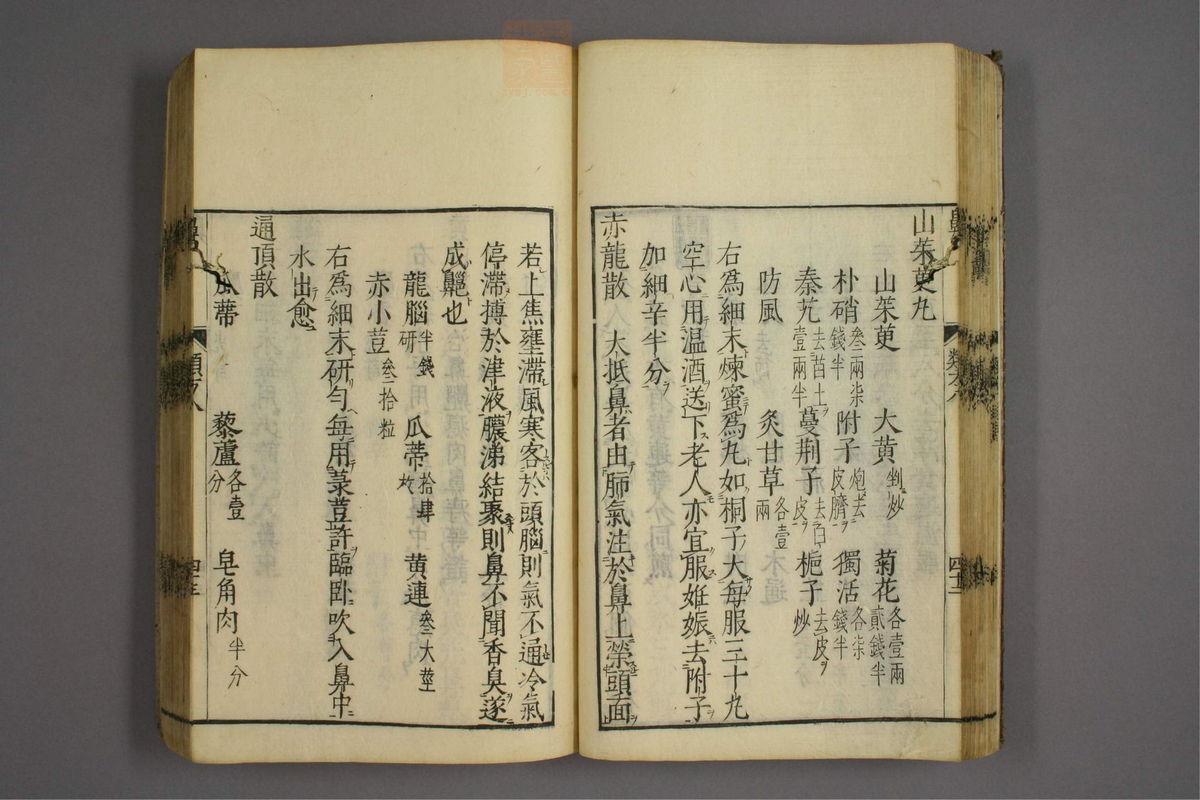 山茱萸丸
山茱萸 大黄剉炒 菊花各壹兩貳錢半
朴硝叁兩柒錢半 附子炮去皮臍 獨活各柒錢半
秦艽去苗土壹兩半 蔓荆子去白皮 梔子去皮炒
防風 炙甘草各壹兩
右爲細末煉蜜爲丸如桐子大每服三十丸
空心用温酒送下老人亦宜服姙娠去附子
加細辛半分
赤龍散 大抵鼻者由肺氣注於鼻上榮頭面
若上焦壅滯風寒客於頭腦則氣不通冷氣
停滯搏於津液膿涕結聚則鼻不聞香臭遂
成齆也
龍腦半錢研 瓜蒂拾肆枚 黄連叁大莖
赤小荳叁拾粒
右爲細末研勻每用菉荳許臨卧吹入鼻中
水出愈
通頂散
瓜蒂 藜蘆各壹分 皂角肉半分